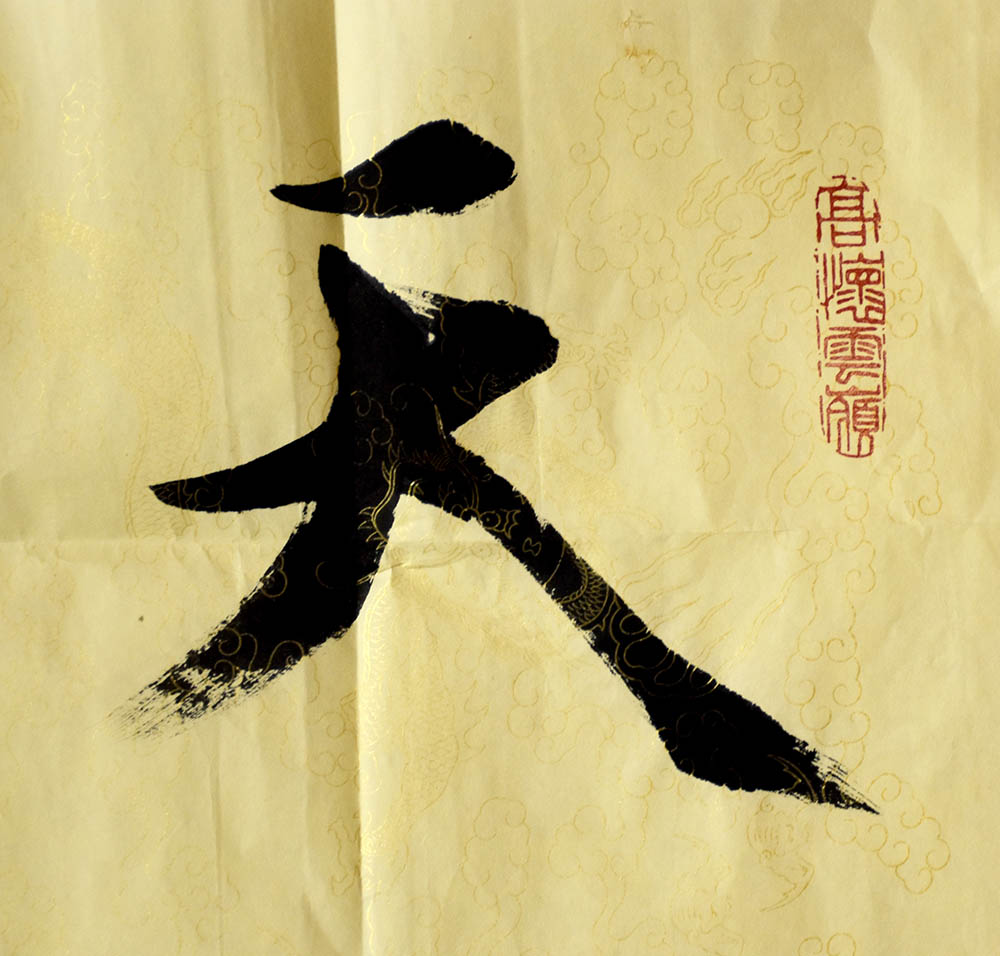 高懷雲嶺
天